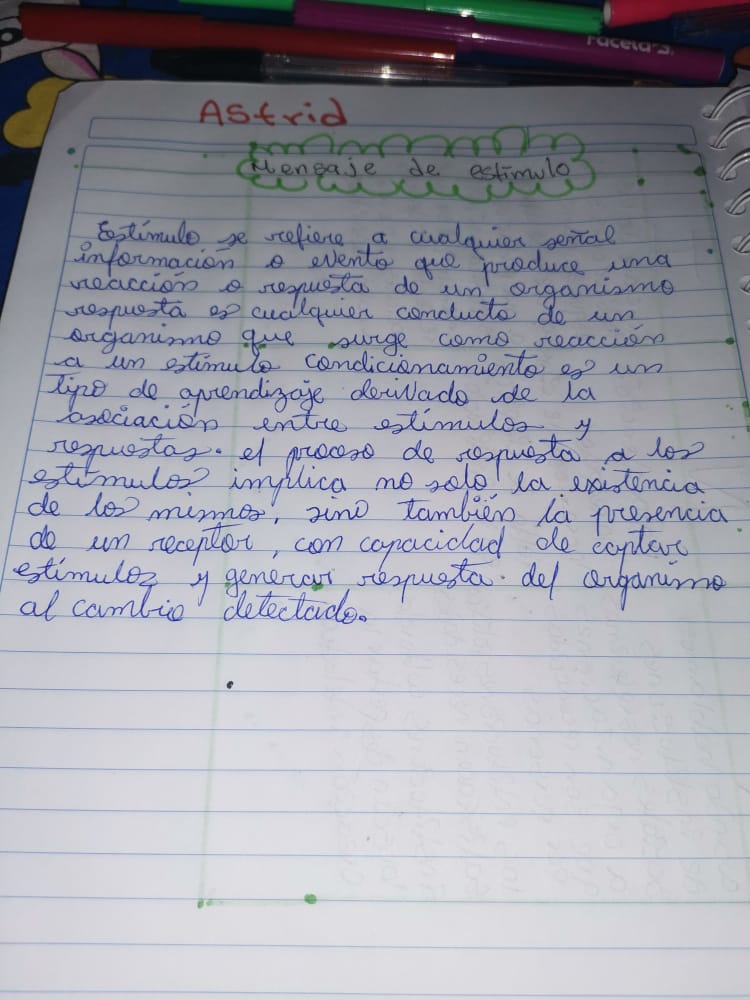 Faceta's.
Astrid
Mensaje de estimulo
Estímulo se refiere a cualquier señal
información o evento que produce una
reacción o respuesta de un organismo
respuesta es cualquier conducta de un
organismo que surge como reacción
a un estímulo condicionamiento es un
tipo de aprendizaje derivado de la
asociación entre estímulos y
respuestas. el proceso de respuesta a los
estímulos implica no solo la existencia
de los mismos, sino también la presencia
de un receptor, con capacidad de captar
estímulos y generar respuesta. del organismo
al cambio detectado.